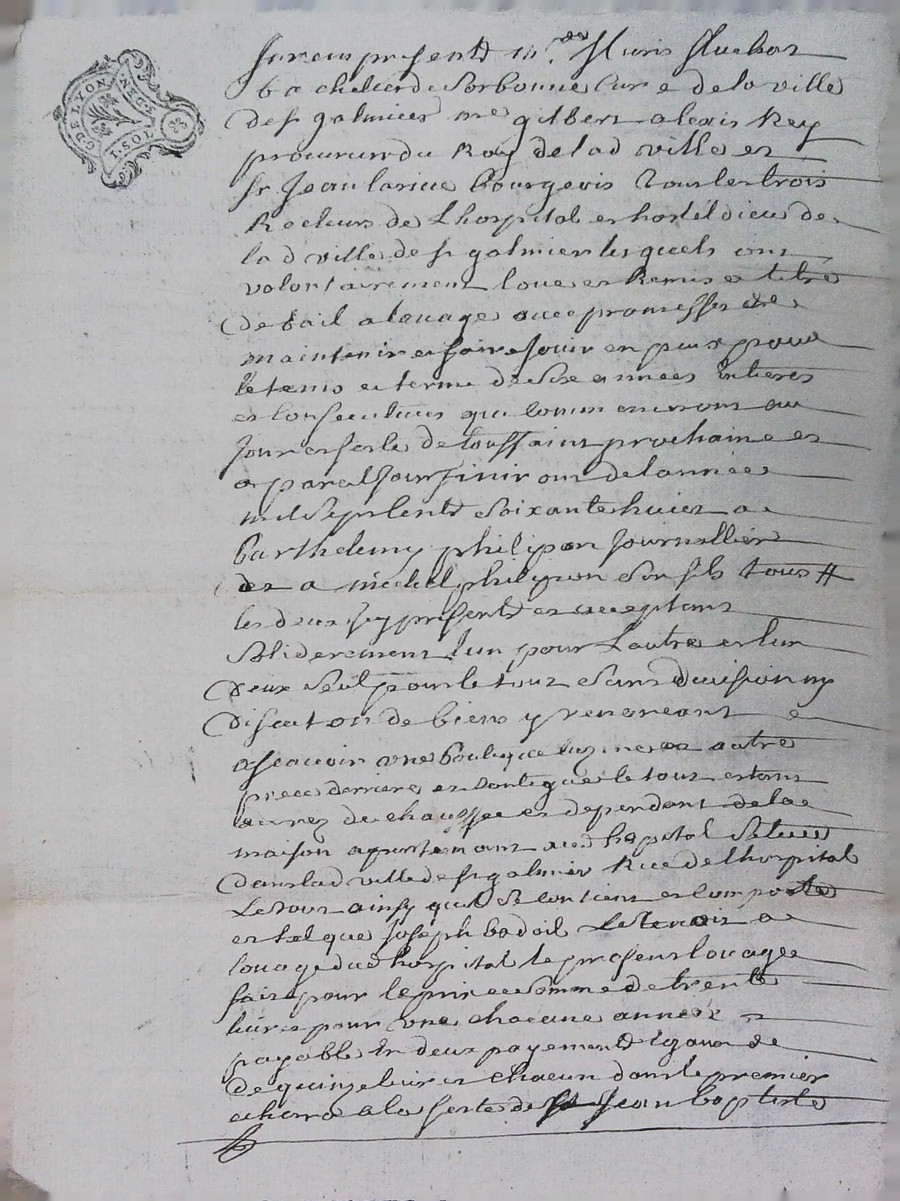 G. DE LYON
I. SOL
Furent presents m.re
bachelier de Sorbonne Curé de la ville
de st galmier me gilbert alexis Rey
procureur du Roy de lad ville et
sr Jean larive bourgeois tous les trois
Recteurs de Lhospital et hostel dieu de
lad ville de st galmier lesquels ont
volontairement loué et Remis a titre
de bail a louage avec promesse de
maintenir et faire Jouir en paix pour
le tems et terme de Six années entieres
et consecutives qui commenceront au
Jour et feste de toussaint prochaine et
a pareil Jour finiront de lannée
mil Sept Cents Soixante huict a
barthelemy philipon Journallier
et a michel philipon Son fils tous #
les deux Icy presents et acceptants
Soliderement lun pour Lautre et lun
deux Seul pour le tout Sans division ny
discution de biens y renonceant
a scavoir une boutique cuzine et autre
piece derriere et Contigue le tout estant
au rez de chaussee et dependant de la
maison apartenant aud hopital Scituée
dans lad ville de st galmier Rue de lhorpital
Le tout ainsy quil Se contient et comporte
et tel que Joseph badoil Le tenoit a
louage dud horpital le present louage
fait pour le prix et Somme de trente
livres pour une chacune année
payable En deux payements Egaux de
de quinze livres chacun dont le premier
echerra a la feste de st Jean baptiste